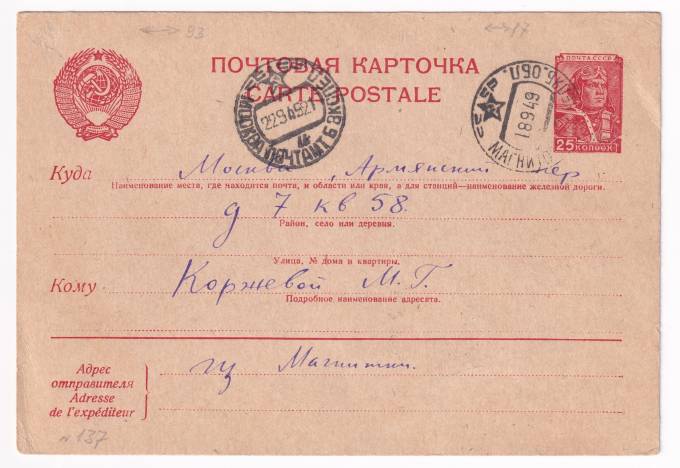 93
17
ПОЧТОВАЯ КАРТОЧКА
CARTE POSTALE
ПОЧТА СССР
25 КОПЕЕК
СССР
МОСКВА ПОЧТАМТ
22 9 49 21
СССР
18 9 49
МАГНИТО
ОБЛ.
Куда Москва, Армянский пер
Наименование места, где находится почта, и области или края, а для станций—наименование железной дороги.
д 7 кв 58.
Район, село или деревня.
Улица, № дома и квартиры.
Кому Коржевой М. Г.
Подробное наименование адресата.
Адрес
отправителя
Adresse
de l'expéditeur
Магнитки.
N 137